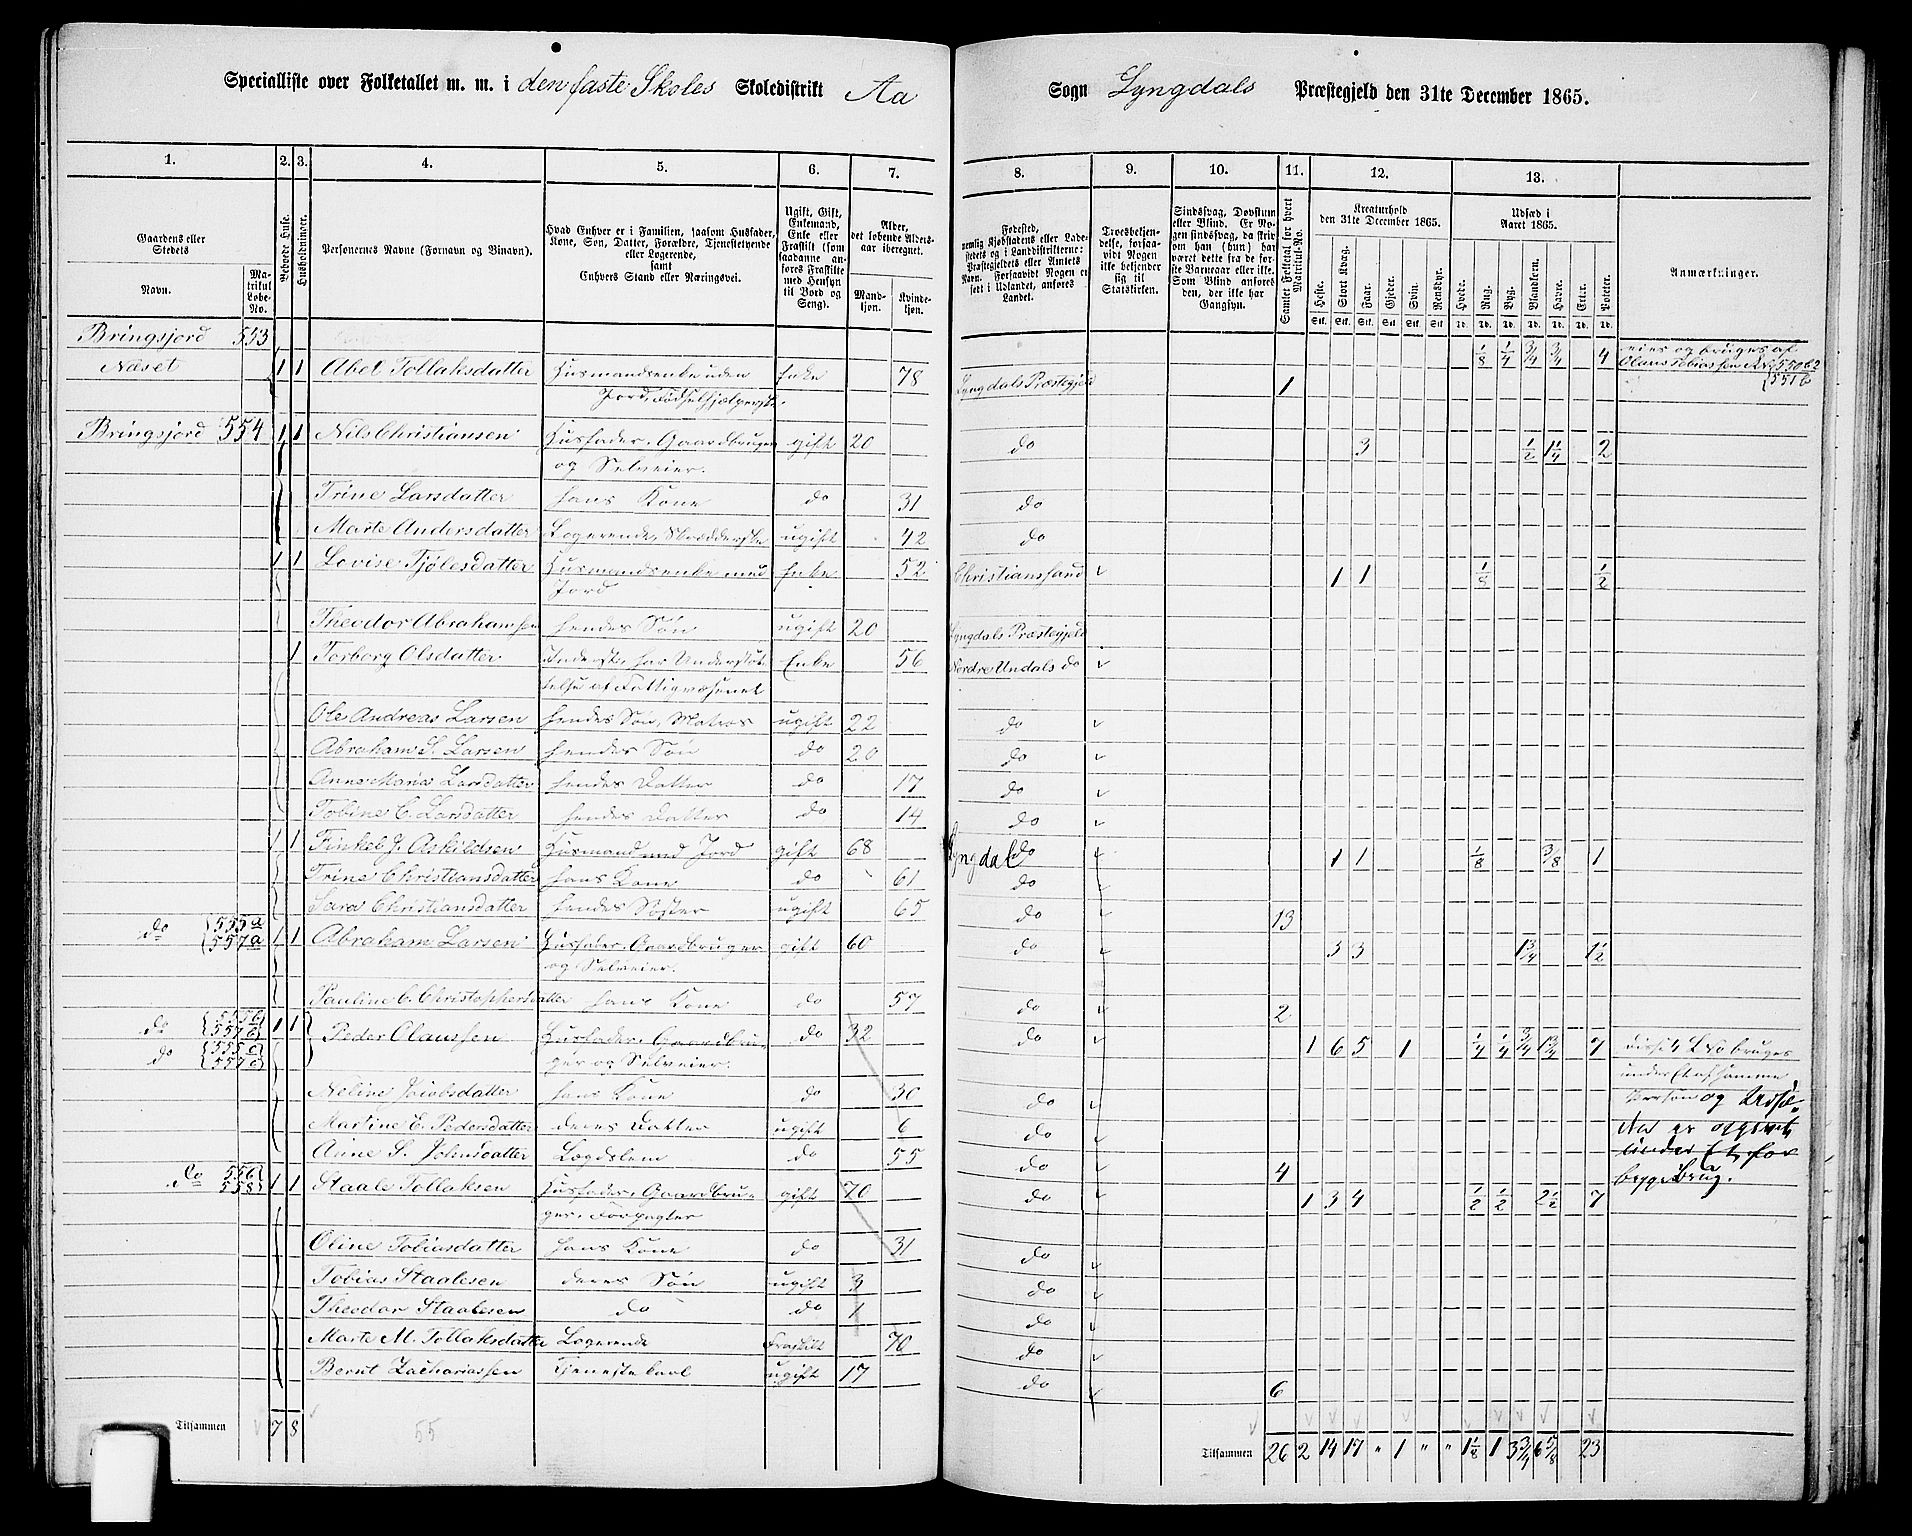 Specialliste over Folketallet m. m. i den faste Skoles Skoledistrikt Aa Sogn Lyngdals Præstegjeld den 31te December 1865.
1. 2. 3. 4. 5. 6. 7. 8. 9. 10. 11. 12. 13.
Gaardens eller Stedets
Navn.
Matrikul Løbe-No.
Beboede Huse.
Husholdninger.
Personernes Navne (Fornavn og Binavn).
Hvad Enhver er i Familien, saasom Husfader, Kone, Søn, Datter, Forældre, Tjenestetyende eller Logerende,
samt
Enhvers Stand eller Næringsvei.
Ugift, Gift, Enkemand, Enke eller Fraskilt (som saadanne anføres Fraskilte med Hensyn til Bord og Seng).
Alder, det løbende Aldersaar iberegnet.
Mandkjøn. Kvindekjøn.
Fødested,
Troesbekjendelse, forsaavidt Nogen ikke bekjender sig til Statskirken.
Sindssvag, Døvstum eller Blind.
Samlet Folketal for hvert Matrikul-No.
Kreaturhold
den 31te December 1865.
Heste. Stort Kvæg. Faar. Gjeder. Svin. Rensdyr.
Udsæd i
Aaret 1865.
Hvede. Rug. Byg. Blandkorn. Havre. Erter. Poteter.
Anmærkninger.
Bringsjord 553 1/8 1/4 3/4 3/4 4 eies og bruges af
Næset 1 1 Abel Tollaksdatter Husmandsenke uden Enke 78 Lyngdals Præstegjeld 1
Jord, Fødselhjælperske.
Bringsjord 554 1 1 Nils Christiansen Husfader, Gaardbruger gift 20 do 3 1/2 1 1/4 2
og Selveier.
Trine Larsdatter hans Kone do 31 do
Marte Andersdatter Logerende, Skrædderske ugift 42 do
1 1 Lovise Tjølesdatter Husmandsenke med Enke 52 Christianssand 1 1 1/8 1/2
Jord
Theodor Abrahamsen hendes Søn ugift 20 Lyngdals Præstegjeld
1 Torborg Olsdatter Inderste, har Understøt- Enke 56 Nordre Undals do
telse af Fattigvæsenet
Ole Andreas Larsen hendes Søn, Matros ugift 22 do
Abraham S. Larsen hendes Søn do 20 do
Anne Maria Larsdatter hendes Datter do 17 do
Tobine C. Larsdatter hendes Datter do 14 do
1 1 Tinkel J. Askildsen Husmand med Jord gift 68 Lyngdal do 1 1 1/8 3/8 1
Trine Christiansdatter hans Kone do 61 do
Sara Christiansdatter hendes Søster ugift 65 do 13
do 555a 557a 1 1 Abraham Larsen Husfader, Gaardbruger gift 60 do 3 3 1 3/4 1 1/2
og Selveier.
Pauline C. Christophersdatter hans Kone do 57 do 2
do 555b 557b 1 1 Peder Olaussen Husfader, Gaardbru- do 32 do 1 6 5 1 1/4 1/4 3/4 1 3/4 7 disse 4 LNo bruges
do 555c 557c ger og Selveier. under Et af samme
Neline Jacobsdatter hans Kone do 30 do Person og Udsæ-
Martine E. Pedersdatter deres Datter ugift 6 do
Anne S. Johnsdatter Lægdslem do 55 do 4
do 556 558 1 1 Staale Tollaksen Husfader, Gaardbru- gift 70 do 1 3 4 1/2 1/2 2 1/2 7
ger, Forpagter
Oline Tobiasdatter hans Kone do 31 do
Tobias Staalesen deres Søn ugift 3 do
Theodor Staalesen do do 1 do
Marte M. Tollaksdatter Logerende Fraskilt 70 do
Bernt Zachariassen Tjenestekarl ugift 17 do 6
Tilsammen 7 8 55 Tilsammen 26 2 14 17 " 1 " " 1 1/8 1 3 3/4 6 5/8 23